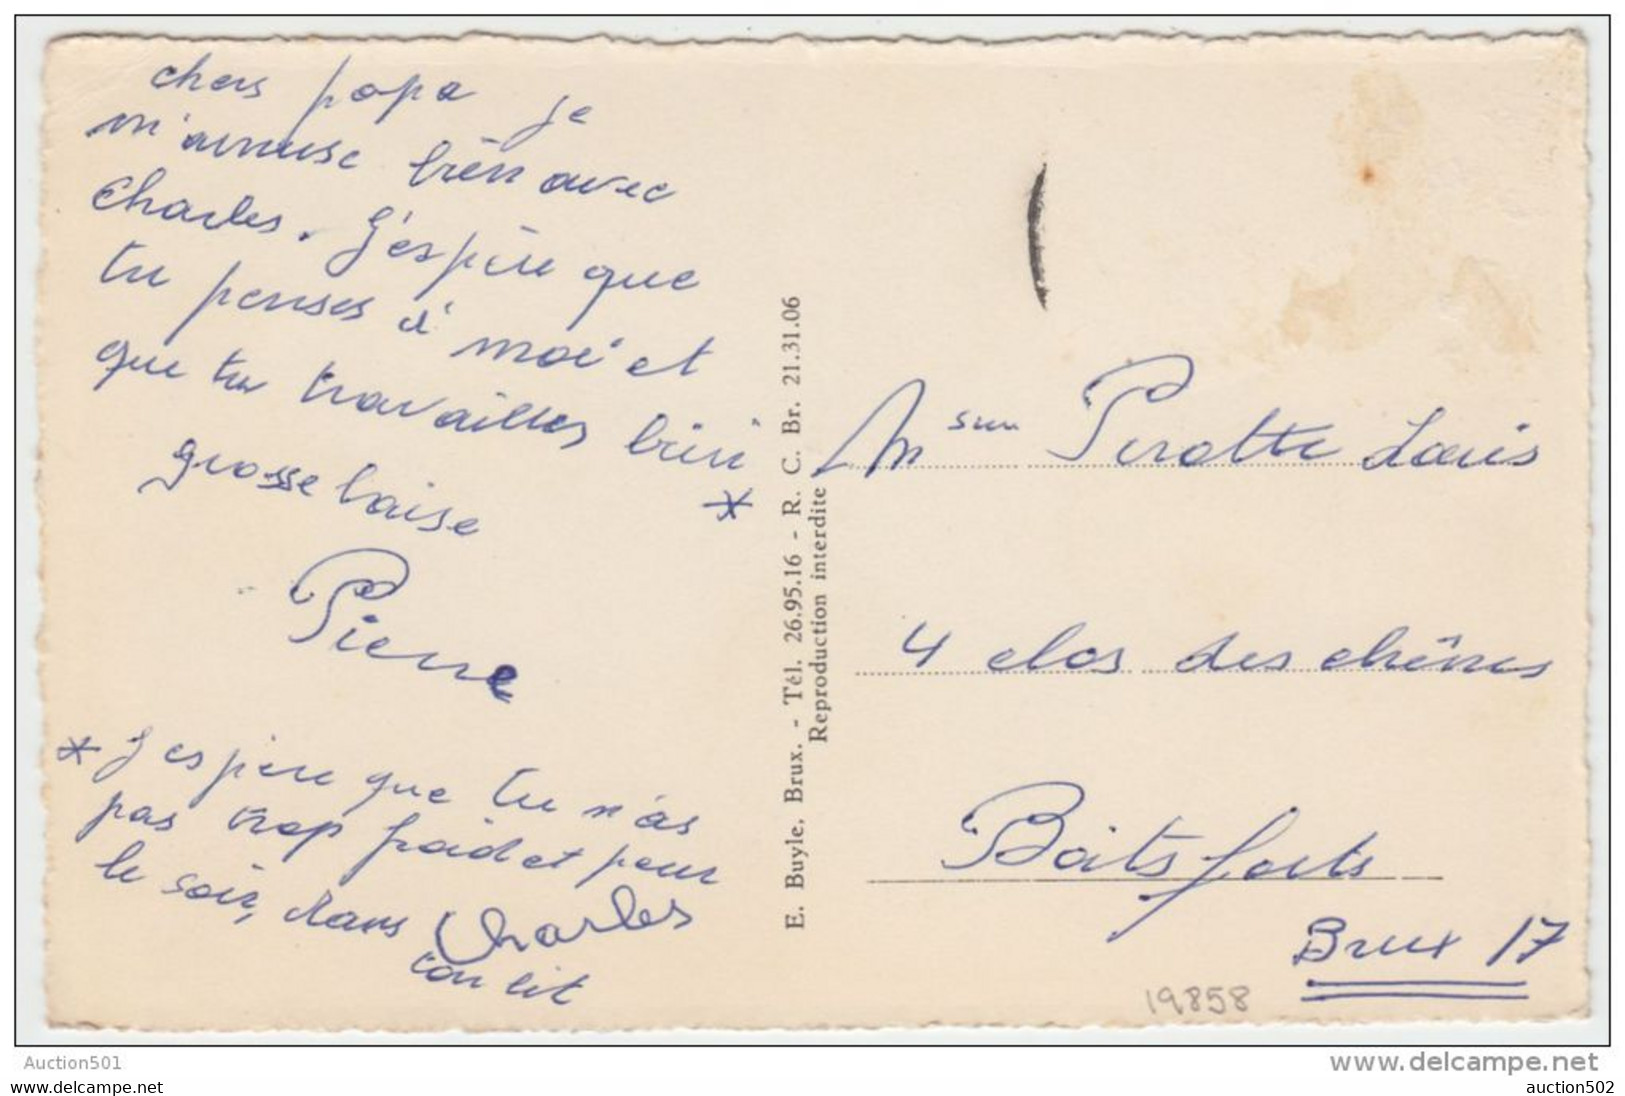 chers papa je
m'amuse bien avec
Charles. J'espère que
tu penses à moi et
que tu travailles bien
*
grosse baise
Pierre
* J'espère que tu n'as
pas trop froid et peur
le soir, dans
ton lit
Charles
E. Buyle. Brux. - Tél. 26.95.16 - R. C. Br. 21.31.06
Reproduction interdite
Msieur Pirotte Louis
4 clos des chênes
Boitsforts
Brux 17
19858
Auction501
www.delcampe.net
www.delcampe.net
auction502